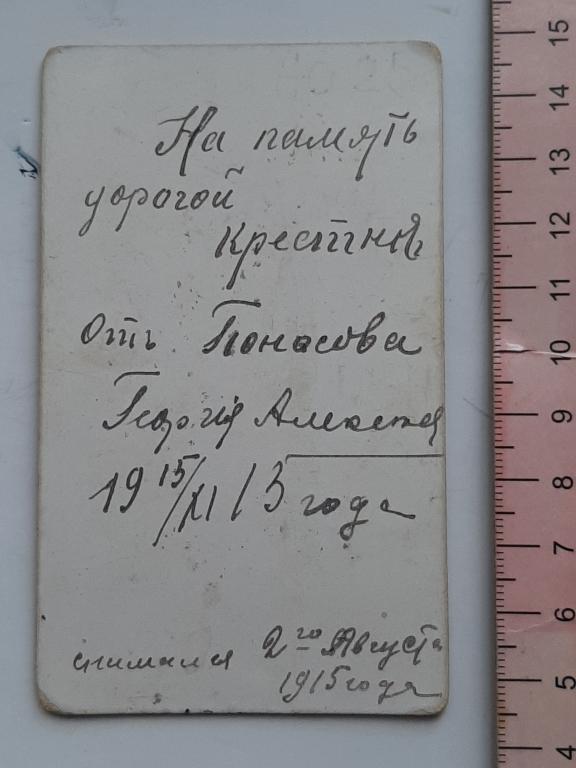 На память
дорогой
Крестной
Отъ Понасова
Георгія Алексея
1915/XI 13 года
снимался 2го Августа
1915 года
15
14
13
12
11
10
9
8
7
6
5
4